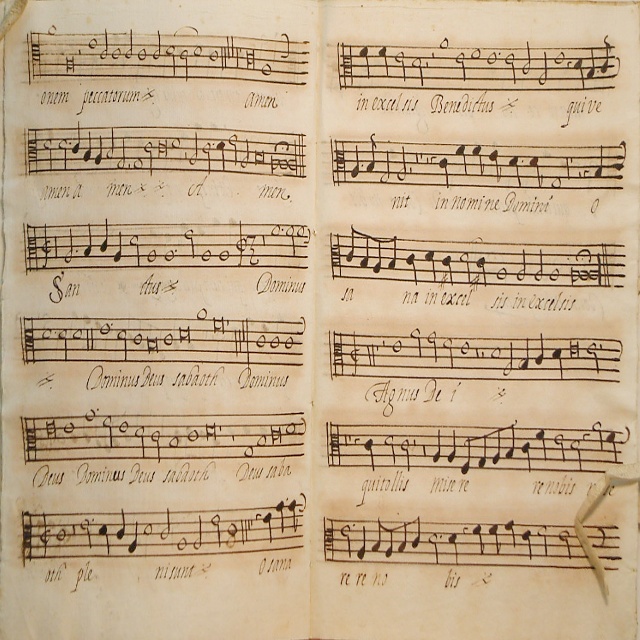 onem peccatorum amen
amen a men A men.
San ctus Dominus
Dominus Deus sabaoth Dominus
Deus Dominus Deus sabaoth Deus saba
oth ple ni sunt Osana
in excelsis Benedictus qui ve
nit in nomine Domini O
sa na in excel sis in excelsis
Agnus De i
qui tollis misere re nobis
re re no bis